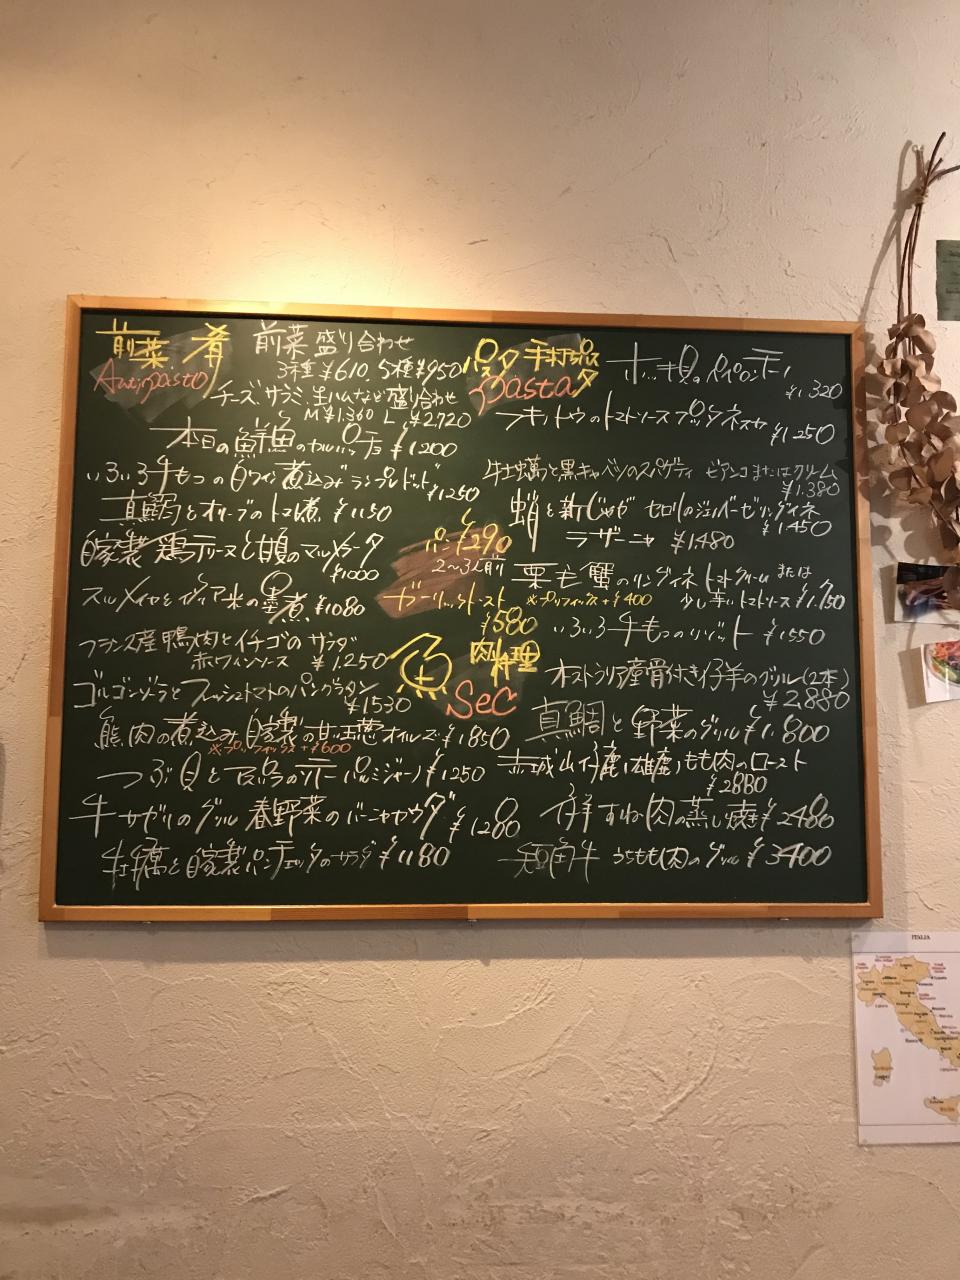 前菜 肴
Antipasto
前菜盛り合わせ
3種¥610. 5種¥950
チーズ、サラミ、生ハムなど盛り合わせ
M ¥1,360 L ¥2,720
本日の鮮魚のカルパッチョ ¥1200
いろいろ牛もつの白ワイン煮込み ランプレドット
¥1250
真鯛とオリーブのトマト煮 ¥1150
自家製 鶏テリーヌと甘夏のマルメラータ
¥1000
スルメイカとイタリア米の墨煮 ¥1080
フランス産鴨肉とイチゴのサラダ
赤ワインソース ¥1,250
ゴルゴンゾーラとフレッシュトマトのパングラタン
¥1530
熊肉の煮込み 自家製の甘い玉葱 ¥1850
※プリフィックス+¥600
つぶ貝と パルミジャーノ ¥1250
牛サガリのグリル 春野菜のバーニャカウダ ¥1280
牡蠣と自家製パンチェッタのサラダ ¥1180
パン ¥290
2〜3人前
ガーリックトースト
¥580
パスタ 手打ちパスタ
pasta
¥1320
フキノトウのトマトソース プッタネスカ ¥1250
牡蠣と黒キャベツのスパゲティ ビアンコまたはクリーム
¥1.380
蛸と新じゃが セロリのジェノベーゼ リングイネ
¥1.450
ラザーニャ ¥1.480
栗毛蟹のリングイネ トマトクリーム または
※プリフィックス+¥400 少し辛いトマトソース ¥1.750
いろいろ牛もつのリゾット ¥1550
魚 肉料理
Sec
オーストラリア産骨付き仔羊のグリル(2本)
¥2,880
真鯛と野菜のグリル ¥1.800
赤城山仔鹿(雄鹿)もも肉のロースト
¥2880
仔羊すね肉の蒸し焼き ¥2480
短角牛 うちもも肉のグリル ¥3400
ITALIA